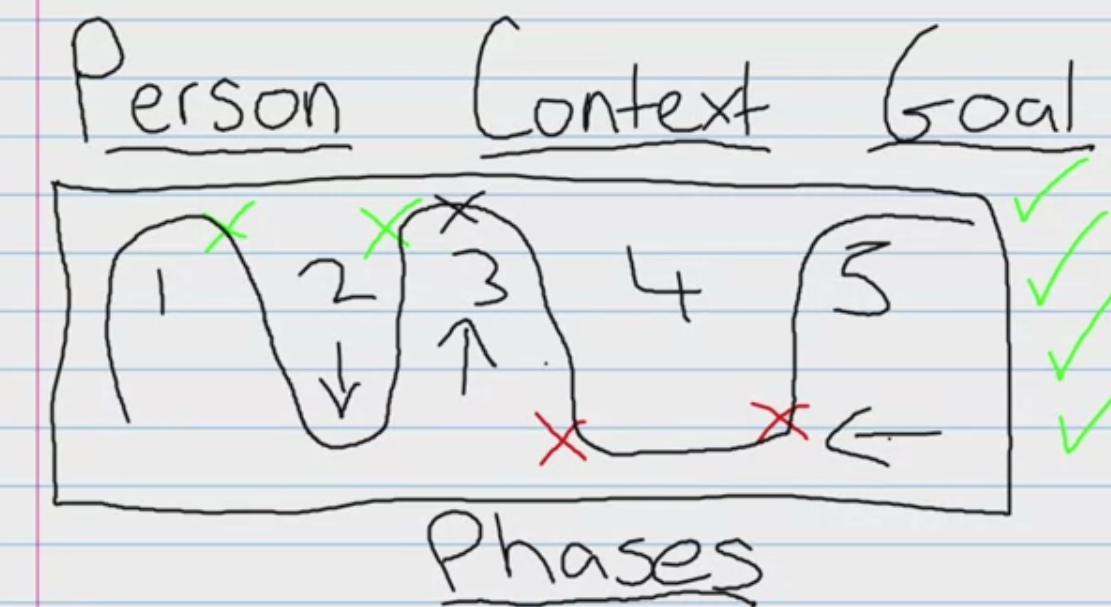 Person Context Goal
1 2 3 4 5
Phases